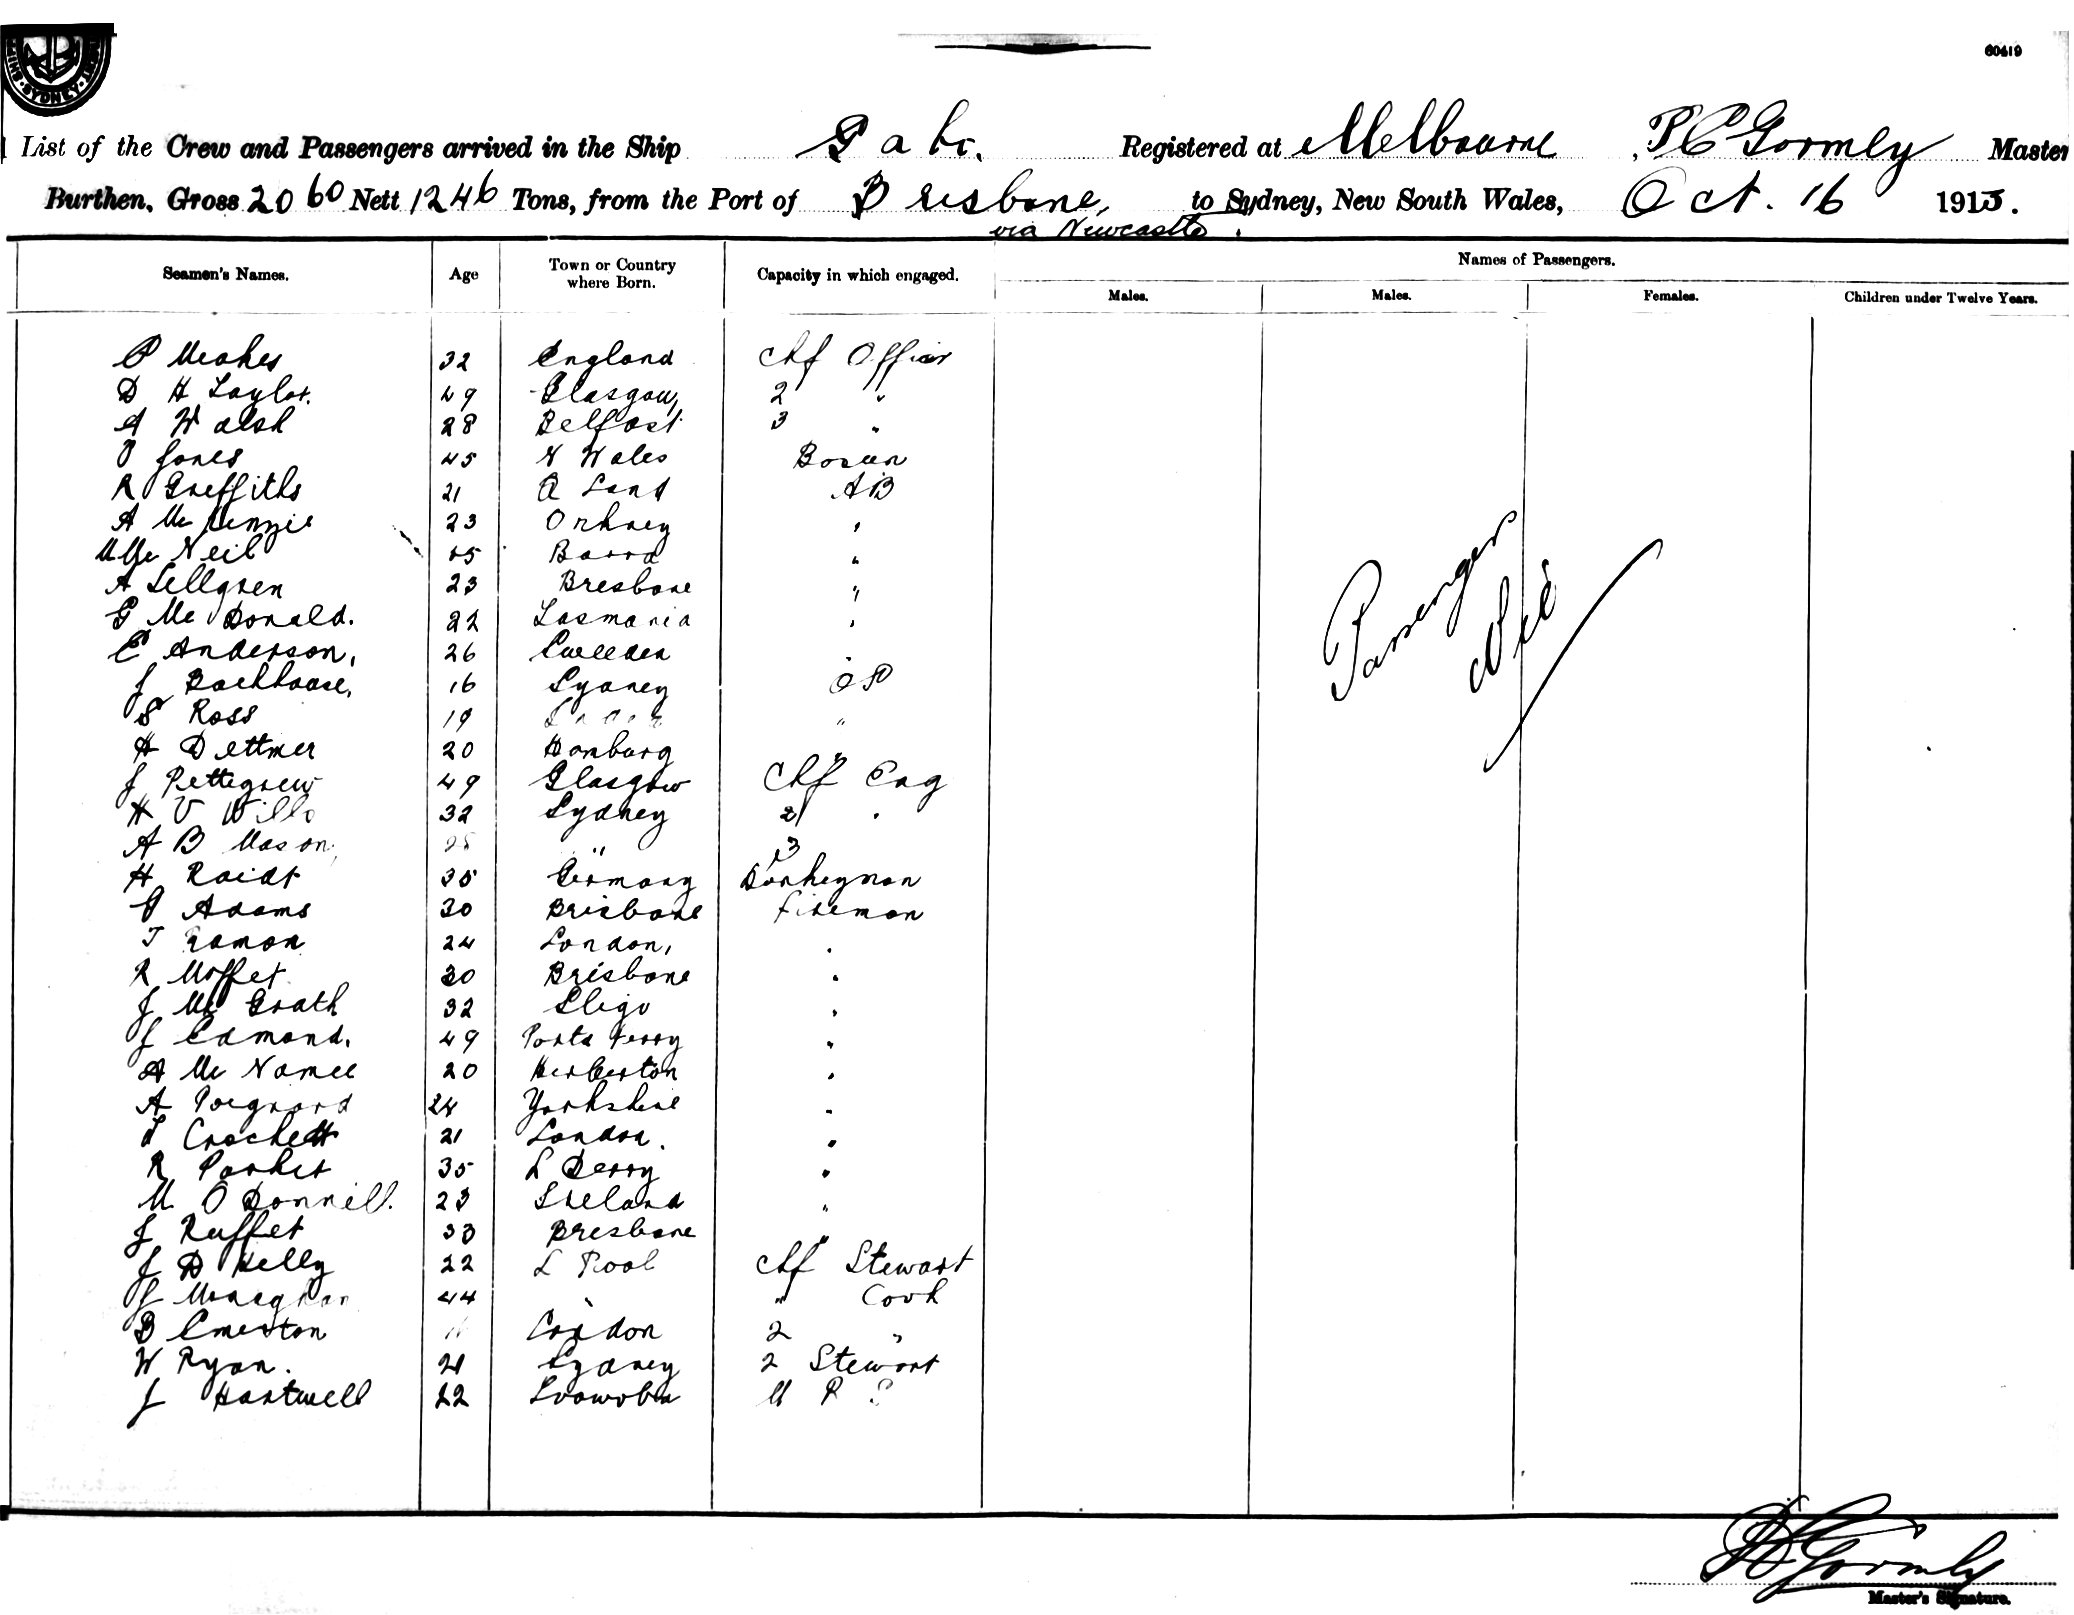 SYDNEY
60419
List of the Crew and Passengers arrived in the Ship Gabo. Registered at Melbourne P C Gormly Master
Burthen, Gross 2060 Nett 1246 Tons, from the Port of Brisbane, to Sydney, New South Wales, Oct. 16 1913.
via Newcastle.
Seamen's Names. Age Town or Country where Born. Capacity in which engaged. Names of Passengers.
Males. Males. Females. Children under Twelve Years.
P Meakes 32 England Chf Officer
D H Taylor. 49 Glasgow, 2 "
A Walsh 28 Belfast 3 "
P Jones 45 N Wales Bosun
R Greffiths 21 Q Land AB
A McKenzie 23 Orkney "
McNeil Barra "
A Sellgren 23 Bresbane "
G McDonald. 22 Tasmania "
E Anderson, 26 Sweeden "
J Backhouse, 16 Sydney OS
S Ross 19 "
H Dettmer 20 Hamburg "
J Pettegrew 49 Glasgow Chf Eng
H V Wills 32 Sydney 2 "
A B Mason " 3
H Raidt 35 Germany Donkeyman
Adams 30 Brisbane Fireman
T Eamon 24 London, "
R Moffet 30 Brisbane "
J McGrath 32 Sligo "
J Edmond. 49 Porta Ferry "
A McNamee 20 Herberton "
A 24 Yorkshire "
T Crockett 21 London. "
R Parker 35 L Derry "
M O Donnell. 23 Ireland "
J Ruffet 33 Bresbane "
J D Kelly 22 L Pool Chf Stewart
J Monaghan 44 " " Cook
B Emerton London 2 "
W Ryan. 21 Sydney 2 Stewart
J Hartwell 22 M R S
Passenger
Nil
P C Gormly
Master's Signature.